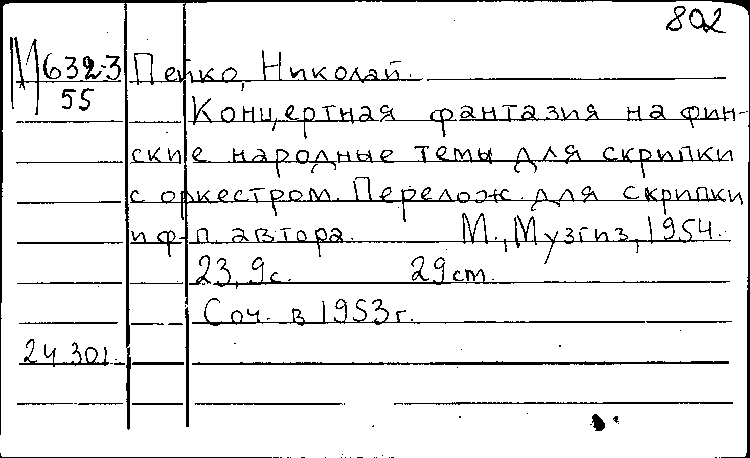 802
М 632-3 Пейко, Николай.
55
Концертная фантазия на фин-
ские народные темы для скрипки
с оркестром. Перелож. для скрипки
и ф-п. автора. М., Музгиз, 1954.
23, 9с. 29cm.
Соч. в 1953г.
24 301.